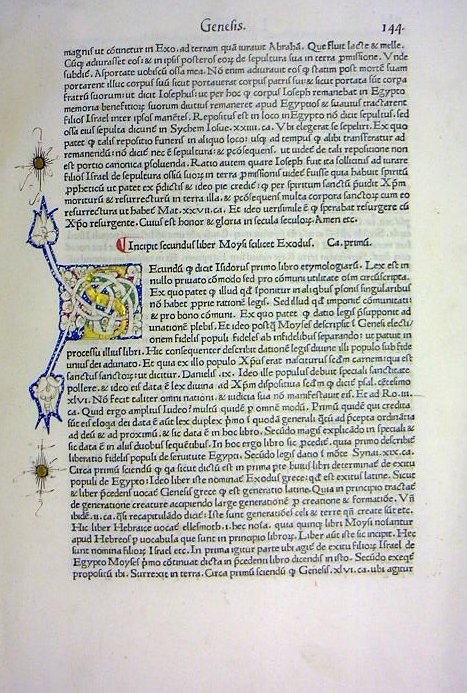 Genesis. 144.
magnis ut cōtinetur in Exo. ad terram quā iurauit Abrahā. Que fluit lacte & melle.
Cūq; adiurasset eos: & in ipsis posteros eorꝝ de sepultura sua in terra ꝓmissione. Vnde
subdit. Asportate uobiscū ossa mea. Nō enim adiurauit eos ꝙ statim post mortē suam
portarent illuc corpus suū sicut portauerat corpus patris sui: & sicut portata sūt corpa
fratrū suorum: ut dicit Iosephus: ut per hoc ꝙ corpus Ioseph remanebat in Egypto
memoria beneficiorꝝ suorum diutius remaneret apud Egyptios & suauius tractarent
filios Israel inter ipsos manētes. Repositus est in loco in Egypto nō dicit sepultus. sed
ossa eius sepulta dicunt̄ in Sychem Iosue. xxiii. ca. Vbi elegerat se sepeliri. Ex quo
patet ꝙ talis repositio funeris in aliquo loco: usq; ad tempus ꝙ alibi transferatur ad
remanendū: nō dicit̄ nec ē sepultura: & ꝑ cōsequens. ut uidet̄ de tali repositione non
est portio canonica ꝑsoluenda. Ratio autem quare Ioseph fuit ita sollicitus ad iurare
filios Israel de sepultura ossiū suorꝝ in terra ꝓmissionis uidet̄ fuisse quia habuit spiritū
ꝓpheticū ut patet ex ꝓdictis & ideo pie credit̄: ꝙ per spiritum sanctū ꝓuidit Xp̄m
moriturū & resurrecturū in terra illa. & ꝑ cōsequens multa corpora sanctorꝝ cum eo
resurrectura ut habet̄ Mat. xxvii. ca. Et ideo uerisimile ē ꝙ sperabat resurgere cū
Xp̄o resurgente. Cuius est honor & gloria in secula seculorꝝ. Amen etc.
Incipit secundus liber Moysi scilicet Exodus. Ca. primū.
SEcundū ꝙ dicit Isidorus primo libro etymologiarū. Lex est in
nullo priuato cōmodo sed pro cōmuni utilitate ossm̄ circūscripta.
Ex quo patet ꝙ illud qd̄ ꝓponitur in aliqbus ꝑsonis singularibus
nō habet ꝓprie rationē legis. Sed illud qd̄ imponit̄ cōmunitati:
& pro bono cōmuni. Ex quo patet ꝙ datio legis ꝓsupponit ad
unationē plebis. Et ideo postq̄ Moyses descripsit ī Genesi electi
onem fidelis populi fidelis ab infidelibus separando: ut patuit in
processu illius libri. Hic consequenter describit dationē legis diuine illi populo sub fide
unius dei adunato. Et quia ex illo populo Xp̄s erat nasciturus secdm̄ carnem: qui est
sanctus sanctorꝝ: ut dicitur. Danielis. ix. Ideo ille populus debuit speciali sanctitate
pollere. & ideo eis data ē lex diuina ad Xp̄m dispositiua secdm̄ ꝙ dicit̄ psal. cētesimo
xlvi. Nō fecit taliter omni nationi. & iudicia sua nō manifestauit eis. Et ad Ro. iii.
ca. Quid ergo amplius Iudeo? multū quidē ꝑ omnē modū. Primū quidē qui credita
sūt eis eloqa dei data ē autē lex duplex ꝓmo ī quodā generali q̄tū ad ꝓcepta ordinata
ad deū & ad proximū: & sic data ē in hoc libro. Secūdo magis explicādo in speciali &
sic data ē in alijs duobus sequētibus. In hoc ergo libro sic ꝓcedit̄. quia primo describit̄
liberatio fidelis populi de seruitute Egypti. Secūdo legis datio ī mōte. Synai. xix. ca.
Circa primū sciendū ꝙ qa sicut dictū est in prima pte huius libri determinat̄ de exitu
populi de Egypto: Ideo liber iste nominat̄ Exodus: qd̄ est exitus latine. Sicut
& liber ꝓcedens uocat̄ Genesis grece ꝙ est generatio latine. Quia in principio tractat̄
de generatione creature accipiendo large generationē ꝓ creatione & formatiōe. Vn̄
ibidē. ii. ca. q̄si recapitulādo dicit̄: Iste sunt generatiōes celi & terre qn̄ create sūt etc.
Hic liber Hebraice uocat̄ ellesmoth. i. hec noīa. quia quinq; libri Moysi noīantur
apud Hebreos ꝑ uocabula que sunt in principio librorꝝ. Liber aūt iste sic incipit. Hec
sunt nomina filiorꝝ Israel etc. In prima igitur parte ubi agit̄ de exitu filiorꝝ Israel de
Egypto Moyses ꝓmo cōtinuat dicta in ꝓcedenti libro dicendis in isto. Secūdo exeqt̄
propositū ibi. Surrexit in terra. Circa primū sciendū ꝙ Genesis. xlvi. ca. ubi agitur